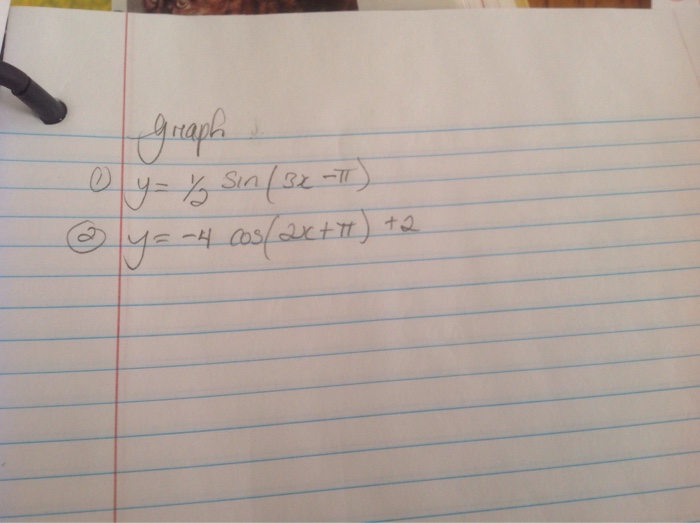 graph
① y = 1/2 sin(3x - π)
② y = -4 cos(2x + π) + 2